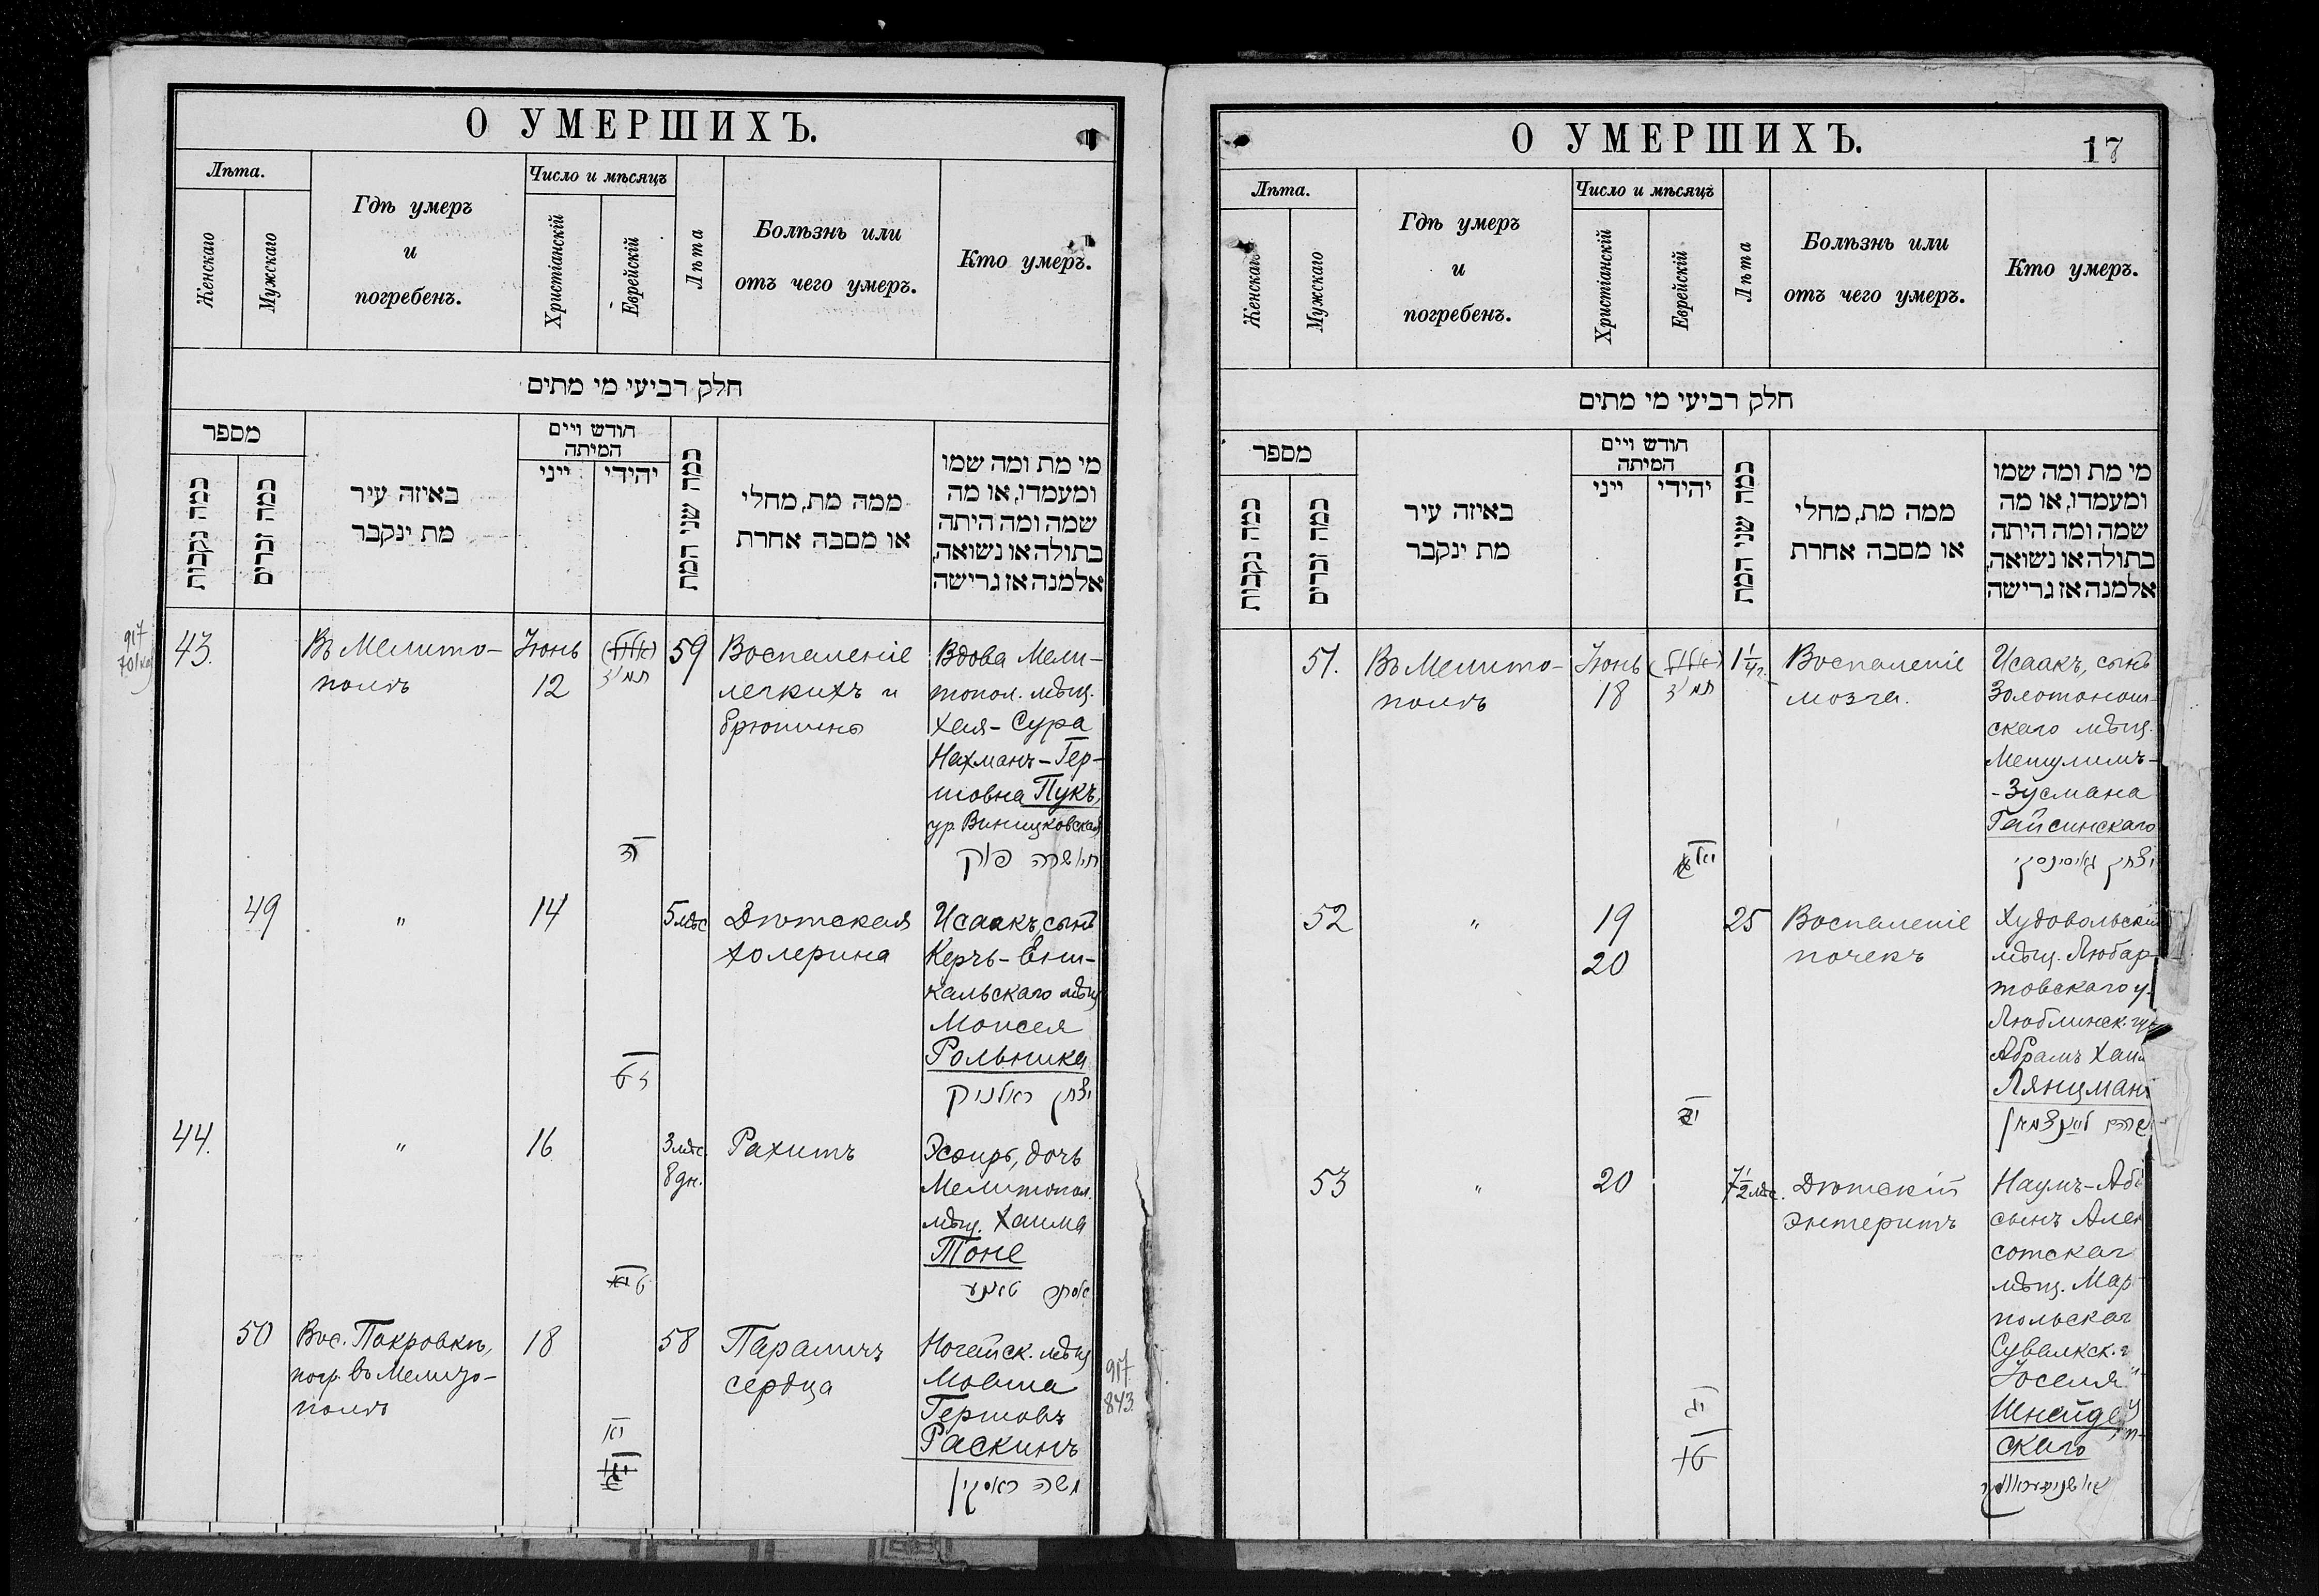 О УМЕРШИХЪ.
Лѣта.
Женскаго
Мужскаго
Гдѣ умеръ
и
погребенъ.
Число и мѣсяцъ
Христіанскій
Еврейскій
Лѣта
Болѣзнь или
отъ чего умеръ.
Кто умеръ.
חלק רביעי מי מתים
מספר
כמה נקבות
כמה זכרים
באיזה עיר
מת ינקבר
חודש ויים
המיתה
ייני
יהידי
כמה שני המת
ממה מת, מחלי
או מסבה אחרת
מי מת ומה שמו
ומעמדו, או מה
שמה ומה היתה
בתולה או נשואה,
אלמנה אז גרישה
917
43.
Въ Мелито-
полѣ
Іюнь
12
59
Воспаленіе
легкихъ и
брюшины
Вдова Мели-
топол. мѣщ.
Хая-Сура
Нахманъ-Гер-
шовна Пукъ,
ур. Виницковская
חיה שרה פוק
49
"
14
5 мѣс
Дѣтская
холерина
Исаакъ, сынъ
Керчь-Ени-
кальскаго мѣщ
Моисея
Рольника
יצחק ראלניק
44.
"
16
3 мѣс.
8 дн.
Рахитъ
Эсѳирь, дочь
Мелитопол.
мѣщ. Хаима
Тоне
אסתר טאנע
50
Въ с. Покровкѣ,
погр. въ Мелито-
полѣ
18
58
Параличъ
сердца
Ногайск. мѣщ
Мовша
Гершовъ
Раскинъ
משה ראסקין
917
843.
О УМЕРШИХЪ.
17
Лѣта.
Женскаго
Мужскаго
Гдѣ умеръ
и
погребенъ.
Число и мѣсяцъ
Христіанскій
Еврейскій
Лѣта
Болѣзнь или
отъ чего умеръ.
Кто умеръ.
חלק רביעי מי מתים
מספר
כמה נקבות
כמה זכרים
באיזה עיר
מת ינקבר
חודש ויים
המיתה
ייני
יהידי
כמה שני המת
ממה מת, מחלי
או מסבה אחרת
מי מת ומה שמו
ומעמדו, או מה
שמה ומה היתה
בתולה או נשואה,
אלמנה אז גרישה
51.
Въ Мелито-
полѣ
Іюнь
18
1 1/4 г.
Воспаленіе
мозга.
Исаакъ, сынъ
Золотонош-
скаго мѣщ.
Мешулимъ-
-Зусмана
Гайсинскаго
יצחק גאיסינסקי
52
"
19
20
25
Воспаленіе
почекъ
Худовольскій
мѣщ. Любар-
товскаго у.
Люблинск. гу
Абрамъ Хаим
Лянцманъ
53
"
20
7 1/2 мѣс.
Дѣтскій
энтеритъ
Наумъ-Аб
сынъ Алек
сотскаг
мѣщ. Мар-
польскаг
Сувалкск. г
Іоселя
Шнайде
скаго